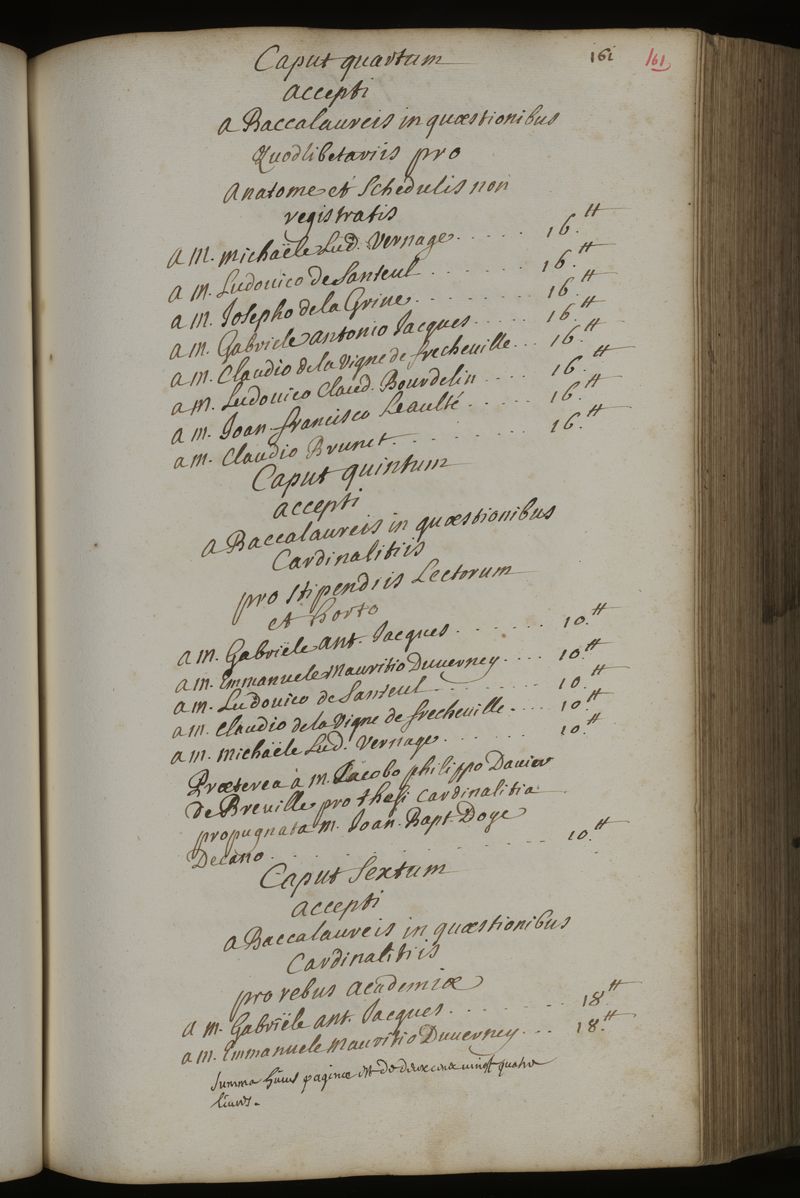 161 161
Caput quartum
accepti
a Baccalaureis in quæstionibus
Quodlibetariis pro
Anatome et Schedulis non
registratis
a M. Michaële Lud. Vernage . . . . . 16.^tt
a M. Ludouico de Santeul . . . . . . . 16.^tt
a M. Josepho de la Grive . . . . . . . . 16.^tt
a M. Gabriele antonio Jacques . . . . . 16.^tt
a M. Claudio de la Vigne de frecheuille . . . 16.^tt
a M. Ludouico Claud. Bourdelin . . . . 16.^tt
a M. Joan-francisco Leaulté . . . . . 16.^tt
a M. Claudio Brunet . . . . . . . . 16.^tt
Caput quintum
accepti
a Baccalaureis in quæstionibus
Cardinalitiis
pro stipendiis Lectorum
et horto
a M. Gabriële ant. Jacques . . . . . . . 10.^tt
a M. Emmanuele Mauritio Duuerney . . . . 10.^tt
a M. Ludouico de Santeul . . . . . . . . 10.^tt
a M. Claudio de la Vigne de frecheuille . . . . 10.^tt
a M. Michaële Lud. Vernage . . . . . . . 10.^tt
Præterea a M. Jacobo philippo Davier
de Breuille pro thesi Cardinalitia
propugnata M. Joan. Bapt. Doye
Decano . . . . . . . . . . . . . . . 10.^tt
Caput Sextum
accepti
a Baccalaureis in quæstionibus
Cardinalitiis
pro rebus academiæ
a M. Gabriële ant. Jacques . . . . . . . . 18.^tt
a M. Emmanuele Mauritio Duuerney . . . 18.^tt
Summa huius paginæ est de deux cent vingt quatre
liures.